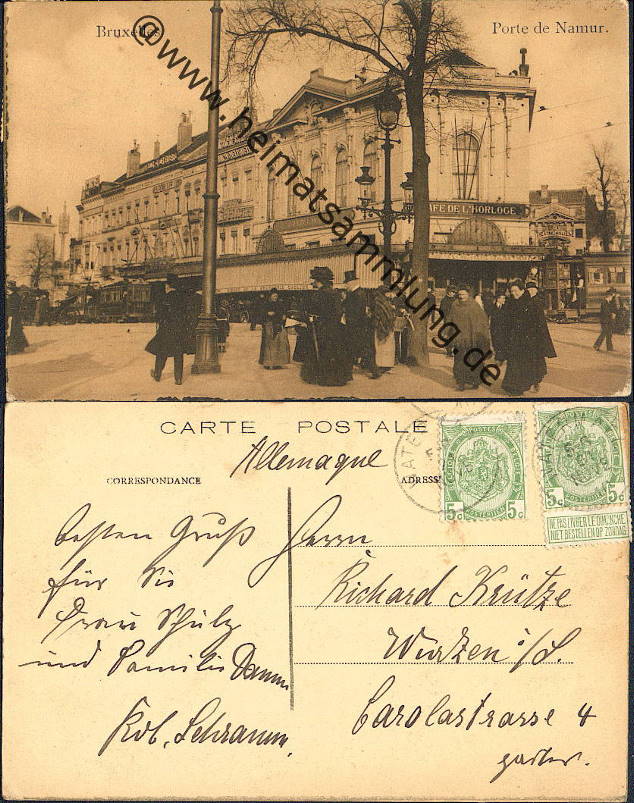 Bruxelles
Porte de Namur.
©www.heimatsammlung.de
CAFE DE L'HORLOGE
CARTE POSTALE
Allemagne
CORRESPONDANCE
ADRESS
POSTES
5c 5c
5c 5c
NE PAS LIVRER LE DIMANCHE
NIET BESTELLEN OP ZONDAG
besten Gruß
für Sie
Frau Schulz
und Familie Damm
Rob. Schramm.
Herrn
Richard Krütze
Wurzen i/S.
Carolastrasse 4